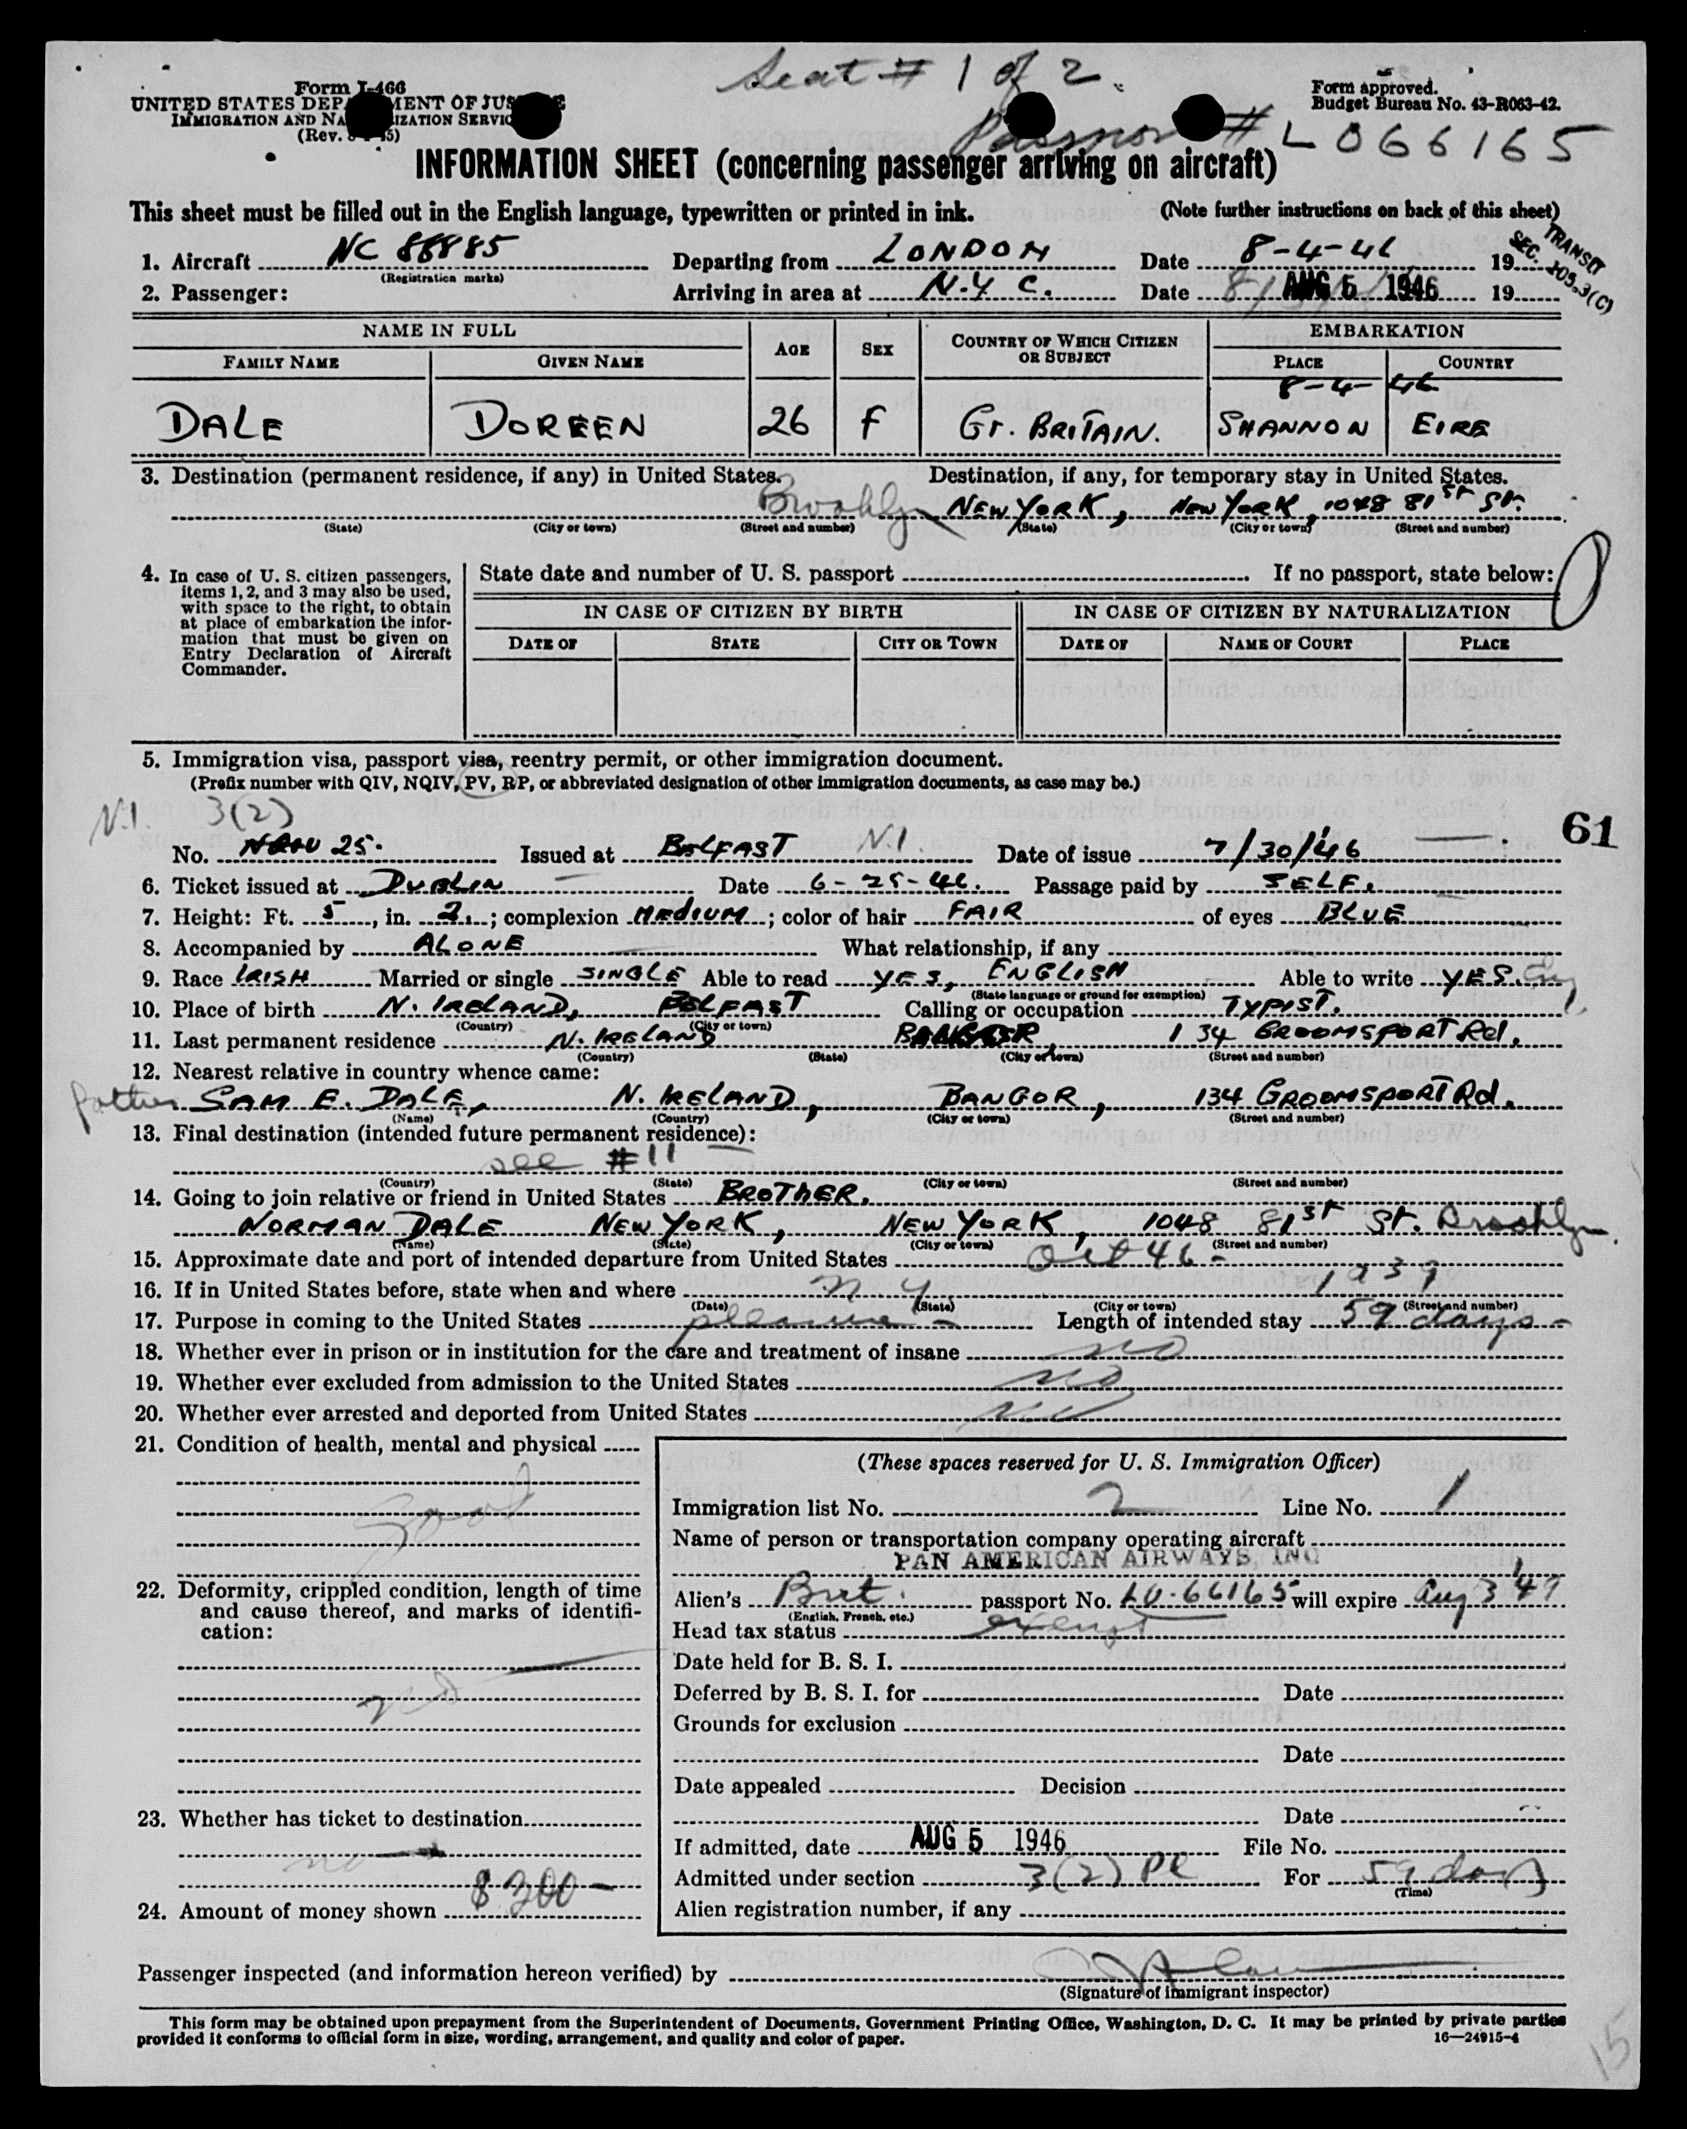 Seat # 1 of 2
Form I-466
UNITED STATES DEPARTMENT OF JUSTICE
IMMIGRATION AND NATURALIZATION SERVICE
(Rev.
Form approved.
Budget Bureau No. 43-R063-42.
Passport # L 066165
INFORMATION SHEET (concerning passenger arriving on aircraft)
This sheet must be filled out in the English language, typewritten or printed in ink. (Note further instructions on back of this sheet)
TRANSIT
SEC. 105.3(C)
1. Aircraft NC 88885 Departing from LONDON Date 8-4-46 19
(Registration marks)
2. Passenger: Arriving in area at N.Y C. Date AUG 5 1946 19
NAME IN FULL AGE SEX COUNTRY OF WHICH CITIZEN OR SUBJECT EMBARKATION
FAMILY NAME GIVEN NAME PLACE COUNTRY
8-4-46
DALE DOREEN 26 F GT. BRITAIN. SHANNON EIRE
3. Destination (permanent residence, if any) in United States. Destination, if any, for temporary stay in United States.
Brooklyn NEW YORK, NEW YORK, 1048 81st ST.
(State) (City or town) (Street and number) (State) (City or town) (Street and number)
4. In case of U. S. citizen passengers, items 1, 2, and 3 may also be used, with space to the right, to obtain at place of embarkation the information that must be given on Entry Declaration of Aircraft Commander.
State date and number of U. S. passport If no passport, state below:
IN CASE OF CITIZEN BY BIRTH IN CASE OF CITIZEN BY NATURALIZATION
DATE OF STATE CITY OR TOWN DATE OF NAME OF COURT PLACE
5. Immigration visa, passport visa, reentry permit, or other immigration document.
(Prefix number with QIV, NQIV, PV, RP, or abbreviated designation of other immigration documents, as case may be.)
N.I. 3(2)
61
No. 25. Issued at BELFAST N.I. Date of issue 7/30/46
6. Ticket issued at DUBLIN Date 6-25-46. Passage paid by SELF.
7. Height: Ft. 5, in. 2.; complexion MEDIUM; color of hair FAIR of eyes BLUE
8. Accompanied by ALONE What relationship, if any
9. Race IRISH Married or single SINGLE Able to read YES, ENGLISH Able to write YES. Eng
(State language or ground for exemption)
10. Place of birth N. IRELAND, BELFAST Calling or occupation TYPIST.
(Country) (City or town)
11. Last permanent residence N. IRELAND BANGOR, 134 GROOMSPORT Rd.
(Country) (State) (City or town) (Street and number)
12. Nearest relative in country whence came:
father SAM E. DALE, N. IRELAND, BANGOR, 134 GROOMSPORT Rd.
(Name) (Country) (City or town) (Street and number)
13. Final destination (intended future permanent residence):
see #11
(Country) (State) (City or town) (Street and number)
14. Going to join relative or friend in United States BROTHER.
NORMAN DALE NEW YORK, NEW YORK, 1048 81st ST. Brooklyn.
(Name) (State) (City or town) (Street and number)
15. Approximate date and port of intended departure from United States Oct 46 -
16. If in United States before, state when and where N.Y 1939
(Date) (State) (City or town) (Street and number)
17. Purpose in coming to the United States pleasure - Length of intended stay 59 days -
18. Whether ever in prison or in institution for the care and treatment of insane no
19. Whether ever excluded from admission to the United States no
20. Whether ever arrested and deported from United States no
21. Condition of health, mental and physical
good
22. Deformity, crippled condition, length of time and cause thereof, and marks of identification:
no
23. Whether has ticket to destination
no
24. Amount of money shown $300-
(These spaces reserved for U. S. Immigration Officer)
Immigration list No. 2 Line No. 1
Name of person or transportation company operating aircraft
PAN AMERICAN AIRWAYS, INC
Alien's Brit. passport No. LO-66165 will expire Aug 3 '49
(English, French, etc.)
Head tax status exempt
Date held for B. S. I.
Deferred by B. S. I. for Date
Grounds for exclusion
Date
Date appealed Decision
Date
If admitted, date AUG 5 1946 File No.
Admitted under section 3(2) Pl For 59 days
(Time)
Alien registration number, if any
Passenger inspected (and information hereon verified) by
(Signature of immigrant inspector)
This form may be obtained upon prepayment from the Superintendent of Documents, Government Printing Office, Washington, D. C. It may be printed by private parties
provided it conforms to official form in size, wording, arrangement, and quality and color of paper. 16—24915-4
15